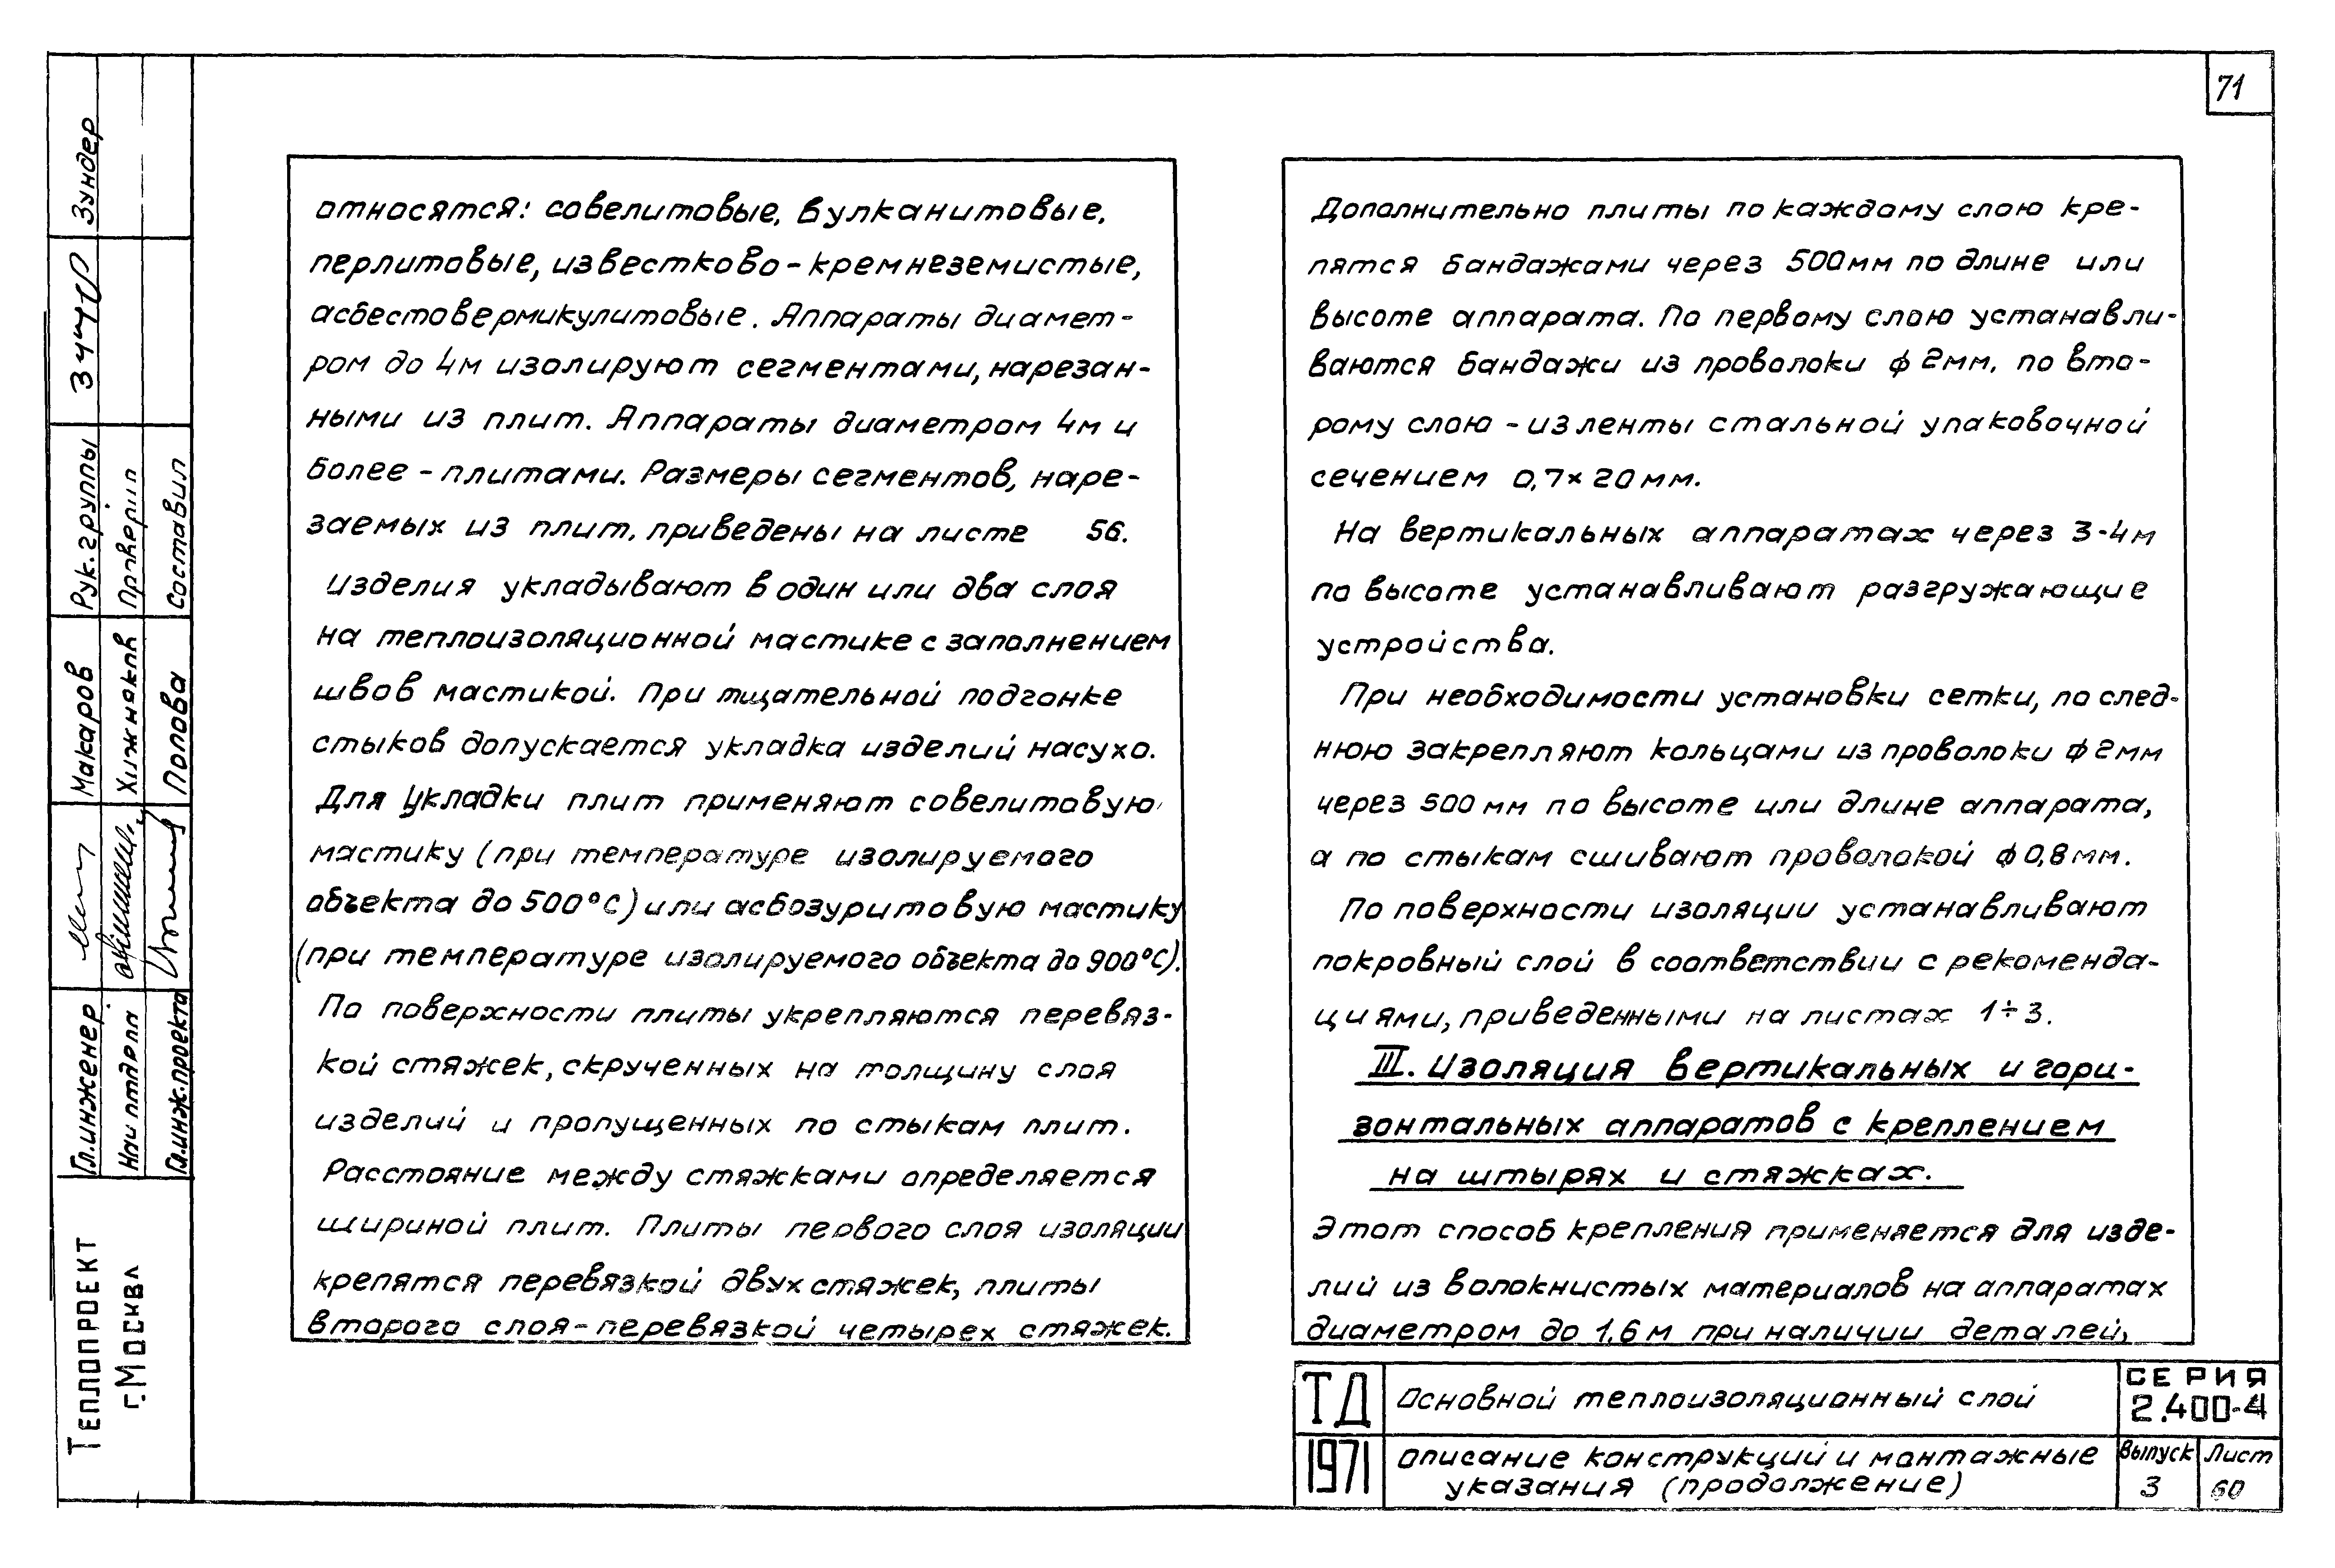 71
относятся: совелитовые, вулканитовые,
перлитовые, известково-кремнеземистые,
асбестовермикулитовые. Аппараты диамет-
ром до 4м изолируют сегментами, нарезан-
ными из плит. Аппараты диаметром 4м и
более - плитами. Размеры сегментов, наре-
заемых из плит, приведены на листе 56.
Изделия укладывают в один или два слоя
на теплоизоляционной мастике с заполнением
швов мастикой. При тщательной подгонке
стыков допускается укладка изделий насухо.
Для укладки плит применяют совелитовую
мастику (при температуре изолируемого
объекта до 500°С) или асбозуритовую мастику
(при температуре изолируемого объекта до 900°С).
По поверхности плиты укрепляются перевяз-
кой стяжек, скрученных на толщину слоя
изделий и пропущенных по стыкам плит.
Расстояние между стяжками определяется
шириной плит. Плиты первого слоя изоляции
крепятся перевязкой двух стяжек, плиты
второго слоя-перевязкой четырех стяжек.
Дополнительно плиты по каждому слою кре-
пятся бандажами через 500мм по длине или
высоте аппарата. По первому слою устанавли-
ваются бандажи из проволоки ф 2мм, по вто-
рому слою - из ленты стальной упаковочной
сечением 0,7×20мм.
На вертикальных аппаратах через 3-4м
по высоте устанавливают разгружающие
устройства.
При необходимости установки сетки, послед-
нюю закрепляют кольцами из проволоки ф 2мм
через 500мм по высоте или длине аппарата,
а по стыкам сшивают проволокой ф 0,8мм.
По поверхности изоляции устанавливают
покровный слой в соответствии с рекоменда-
циями, приведенными на листах 1÷3.
III. Изоляция вертикальных и гори-
зонтальных аппаратов с креплением
на штырях и стяжках.
Этот способ крепления применяется для изде-
лий из волокнистых материалов на аппаратах
диаметром до 1,6м при наличии деталей,
ТД
1971
Основной теплоизоляционный слой
Описание конструкций и монтажные
указания (продолжение)
СЕРИЯ
2.400-4
Выпуск
3
Лист
60
Теплопроект
г. Москва
Гл.инженер Макаров Рук.группы Зундер
Нач отдела Хижняков Проверил
Гл.инж.проекта Попова Составил